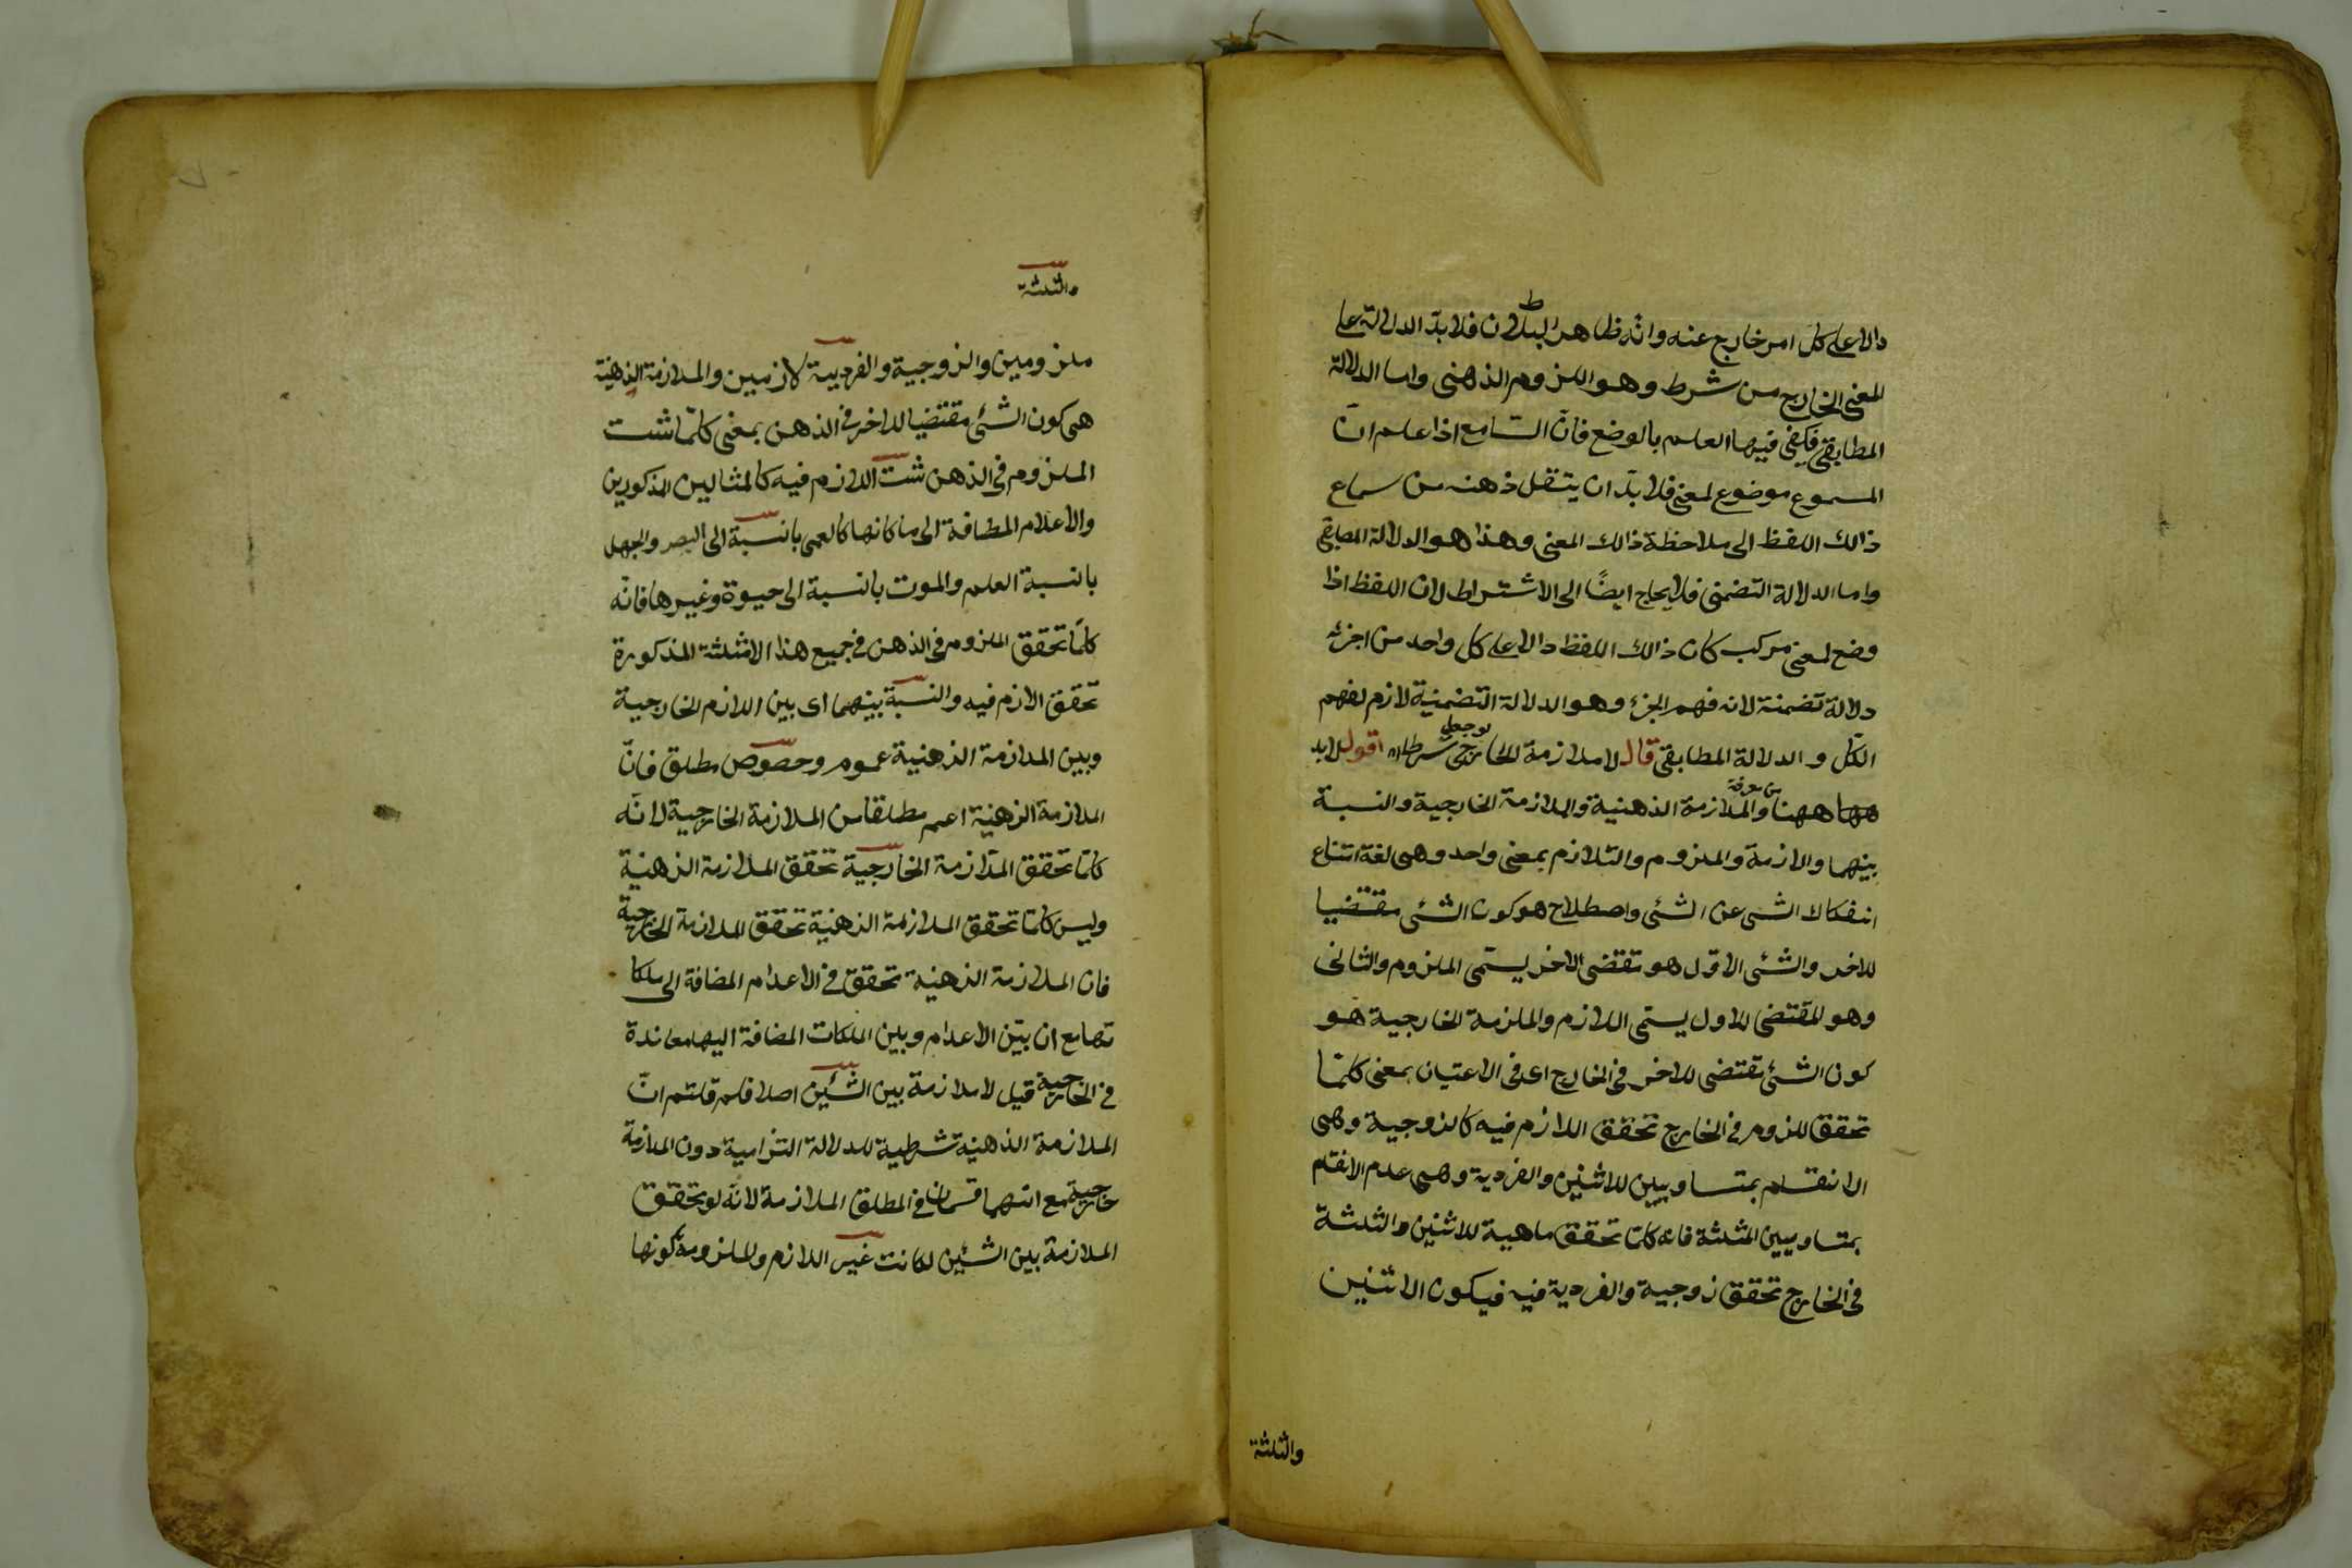 دالا على كل امر خارج عنه وانه ظاهر البطلان فلا بد الدلالة على
المعنى الخارج من شرط وهو اللزوم الذهنى واما الدلالة
المطابقى فيكفى فيها العلم بالوضع فان السامع اذا علم ان
المسموع موضوع لمعنى فلا بد ان ينتقل ذهنه من سماع
ذالك اللفظ الى ملاحظة ذالك المعنى وهذا هو الدلالة المطابقى
واما الدلالة التضمنى فلا يحتاج ايضًا الى الاشتراط لان اللفظ اذا
وضع لمعنى مركب كان ذالك اللفظ دالا على كل واحد من اجزئه
دلالة تضمنة لانه فهم الجزء وهو الدلالة التضمنية لازم لفهم
الكل و الدلالة المطابقى قال لا ملازمة الخارجى لو جعل شرطا اه اقول لابد
ههنا من معرفة والملازمة الذهنية والملازمة الخارجية والنسبة
بينهما والازمة والملزوم والتلازم بمعنى واحد وهى لغة امتناع
انفكاك الشى عن الشئ واصطلاح هو كون الشئ مقتضيا
للاخر والشئ الاول هو مقتضى الاخر يسمى الملزوم والثانى
وهو المقتضى للاول يسمى اللازم والملزمة الخارجية هو
كون الشئ مقتضى للاخر فى الخارج اى فى الاعتيان بمعنى كلما
تحقق للزوم فى الخارج تحقق اللازم فيه كالزوجية وهى
الانقسام بمتساويين للاثنين والفردية وهى عدم الانقسام
بمتساويين الثلثة فانه كلما تحقق ماهية للاثنين والثلثة
فى الخارج تحقق زوجية والفردية فيه فيكون الاثنين
والثلثة
والثلثة
ملزومين والزوجية والفردية لازمين والملازمة الذهنية
هى كون الشئ مقتضيا للاخر فى الذهن بمعنى كلما ثبت
الملزوم فى الذهن ثبت اللازم فيه كالمثالين المذكورين
والاعلام المضافة الى ما كانها كالعمى بالنسبة الى البصر والجهل
بالنسبة العلم والموت بالنسبة الى حيوة وغيرها فانه
كلما تحقق الملزوم فى الذهن فى جميع هذا الامثلة المذكورة
تحقق الازم فيه والنسبة بينهما اى بين اللازم الخارجية
وبين الملازمة الذهنية عموم وخصوص مطلق فان
الملازمة الذهنية اعم مطلقا من الملازمة الخارجية لانه
كلما تحقق الملازمة الخارجية تحقق الملازمة الذهنية
وليس كلما تحقق الملازمة الذهنية تحقق الملازمة الخارجية
فان الملازمة الذهنية تحقق فى الاعدام المضافة الى ملكا
تها مع ان بين الاعدام وبين الملكات المضافة اليها معاندة
فى الخارجية قيل لا ملازمة بين الشئين اصلا فلم قلتم ان
الملازمة الذهنية شرطية للدلالة التزامية دون الملازمة
خارجية مع انهما قسمان فى المطلق الملازمة لانه لو تحقق
الملازمة بين الشئين لكانت غير اللازم والملزومة لكونها